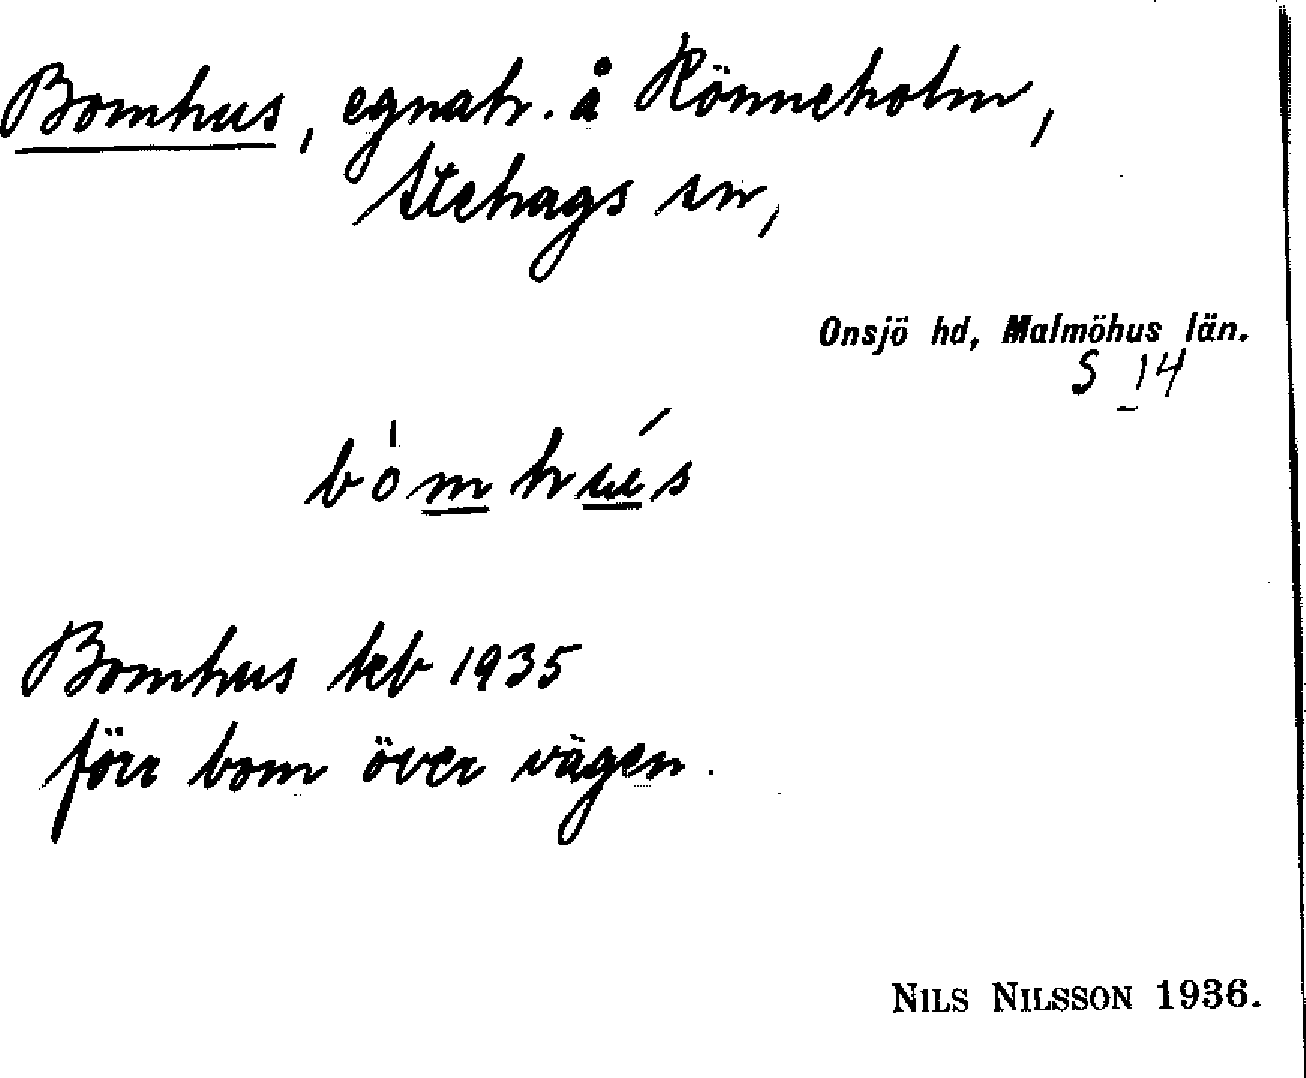 Bomhus, egnah. å Rönneholm,
Stehags sn,
Onsjö hd, Malmöhus län.
S 14
bomhus
Bomhus kb 1935
förr bom över vägen.
NILS NILSSON 1936.